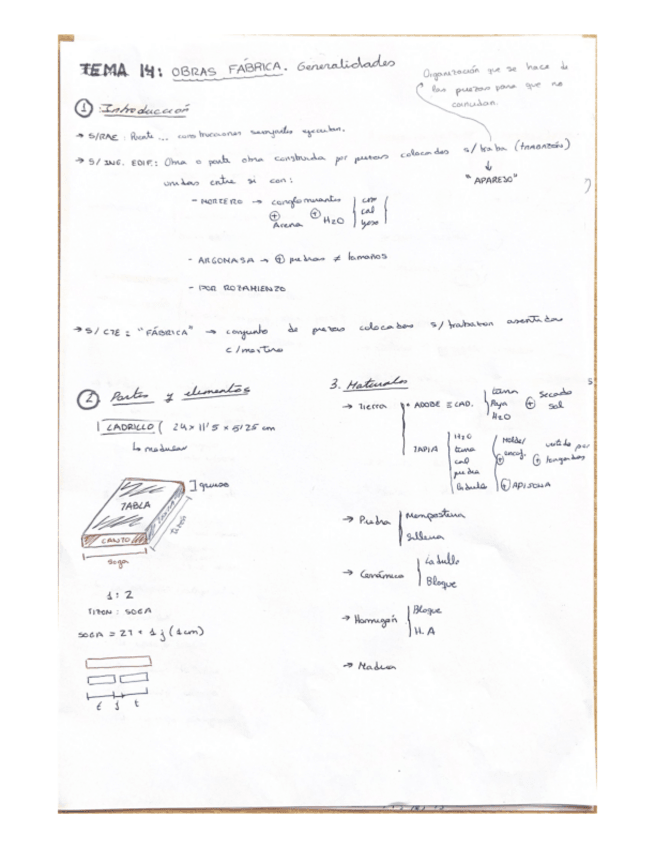 TEMA 14: OBRAS FÁBRICA. Generalidades
Organización que se hace de
las piezas para que no
coincidan.
1 Introducción
→ S/RAE: Puente ... construcciones ejecutan.
→ S/ING. EDIF.: Obra o parte obra construida por piezas colocadas s/ traba (trabazón)
"APAREJO"
unidas entre si con:
- MORTERO → conglomerantes
cal
yeso
⊕ Arena ⊕ H2O
- ARGAMASA → ⊕ piedras ≠ tamaños
- POR ROZAMIENTO
→ S/ CTE: "FÁBRICA" → conjunto de piezas colocadas s/ trabazon asentadas
c/ mortero
2 Partes y elementos
LADRILLO ( 24 x 11'5 x 5'25 cm
↳ modular
grueso
TABLA
CANTO
TESTA
tizon
soga
1 : 2
TIZON : SOGA
SOGA = 2T + 1 j (1cm)
t j t
3. Materiales
→ Tierra
ADOBE
Paja
H2O
⊕ Secado
sol
TAPIA
H2O
tierra
cal
piedra
Molde
encof.
⊕ vertido por
tongadas
⊕ APISONA
→ Piedra
Mamposteria
Silleria
→ Cerámica
Ladrillo
Bloque
→ Hormigón
Bloque
H.A
→ Madera